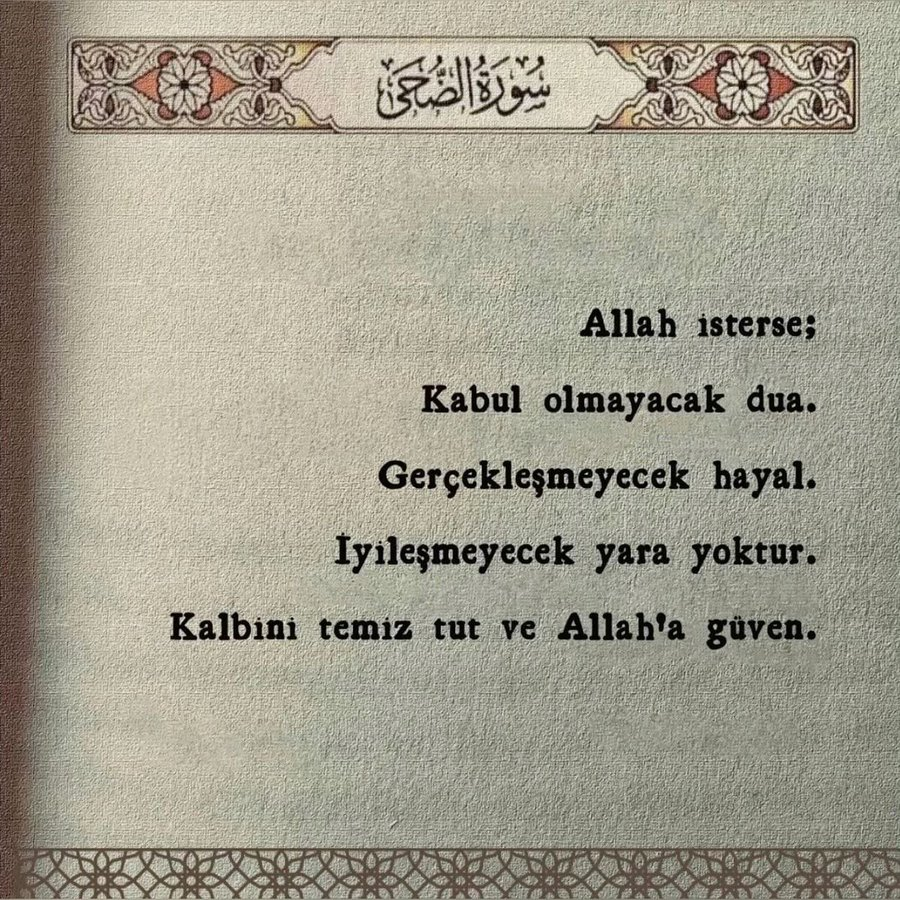 سُورَةُ الضُّحَى
Allah isterse;
Kabul olmayacak dua.
Gerçekleşmeyecek hayal.
İyileşmeyecek yara yoktur.
Kalbini temiz tut ve Allah'a güven.